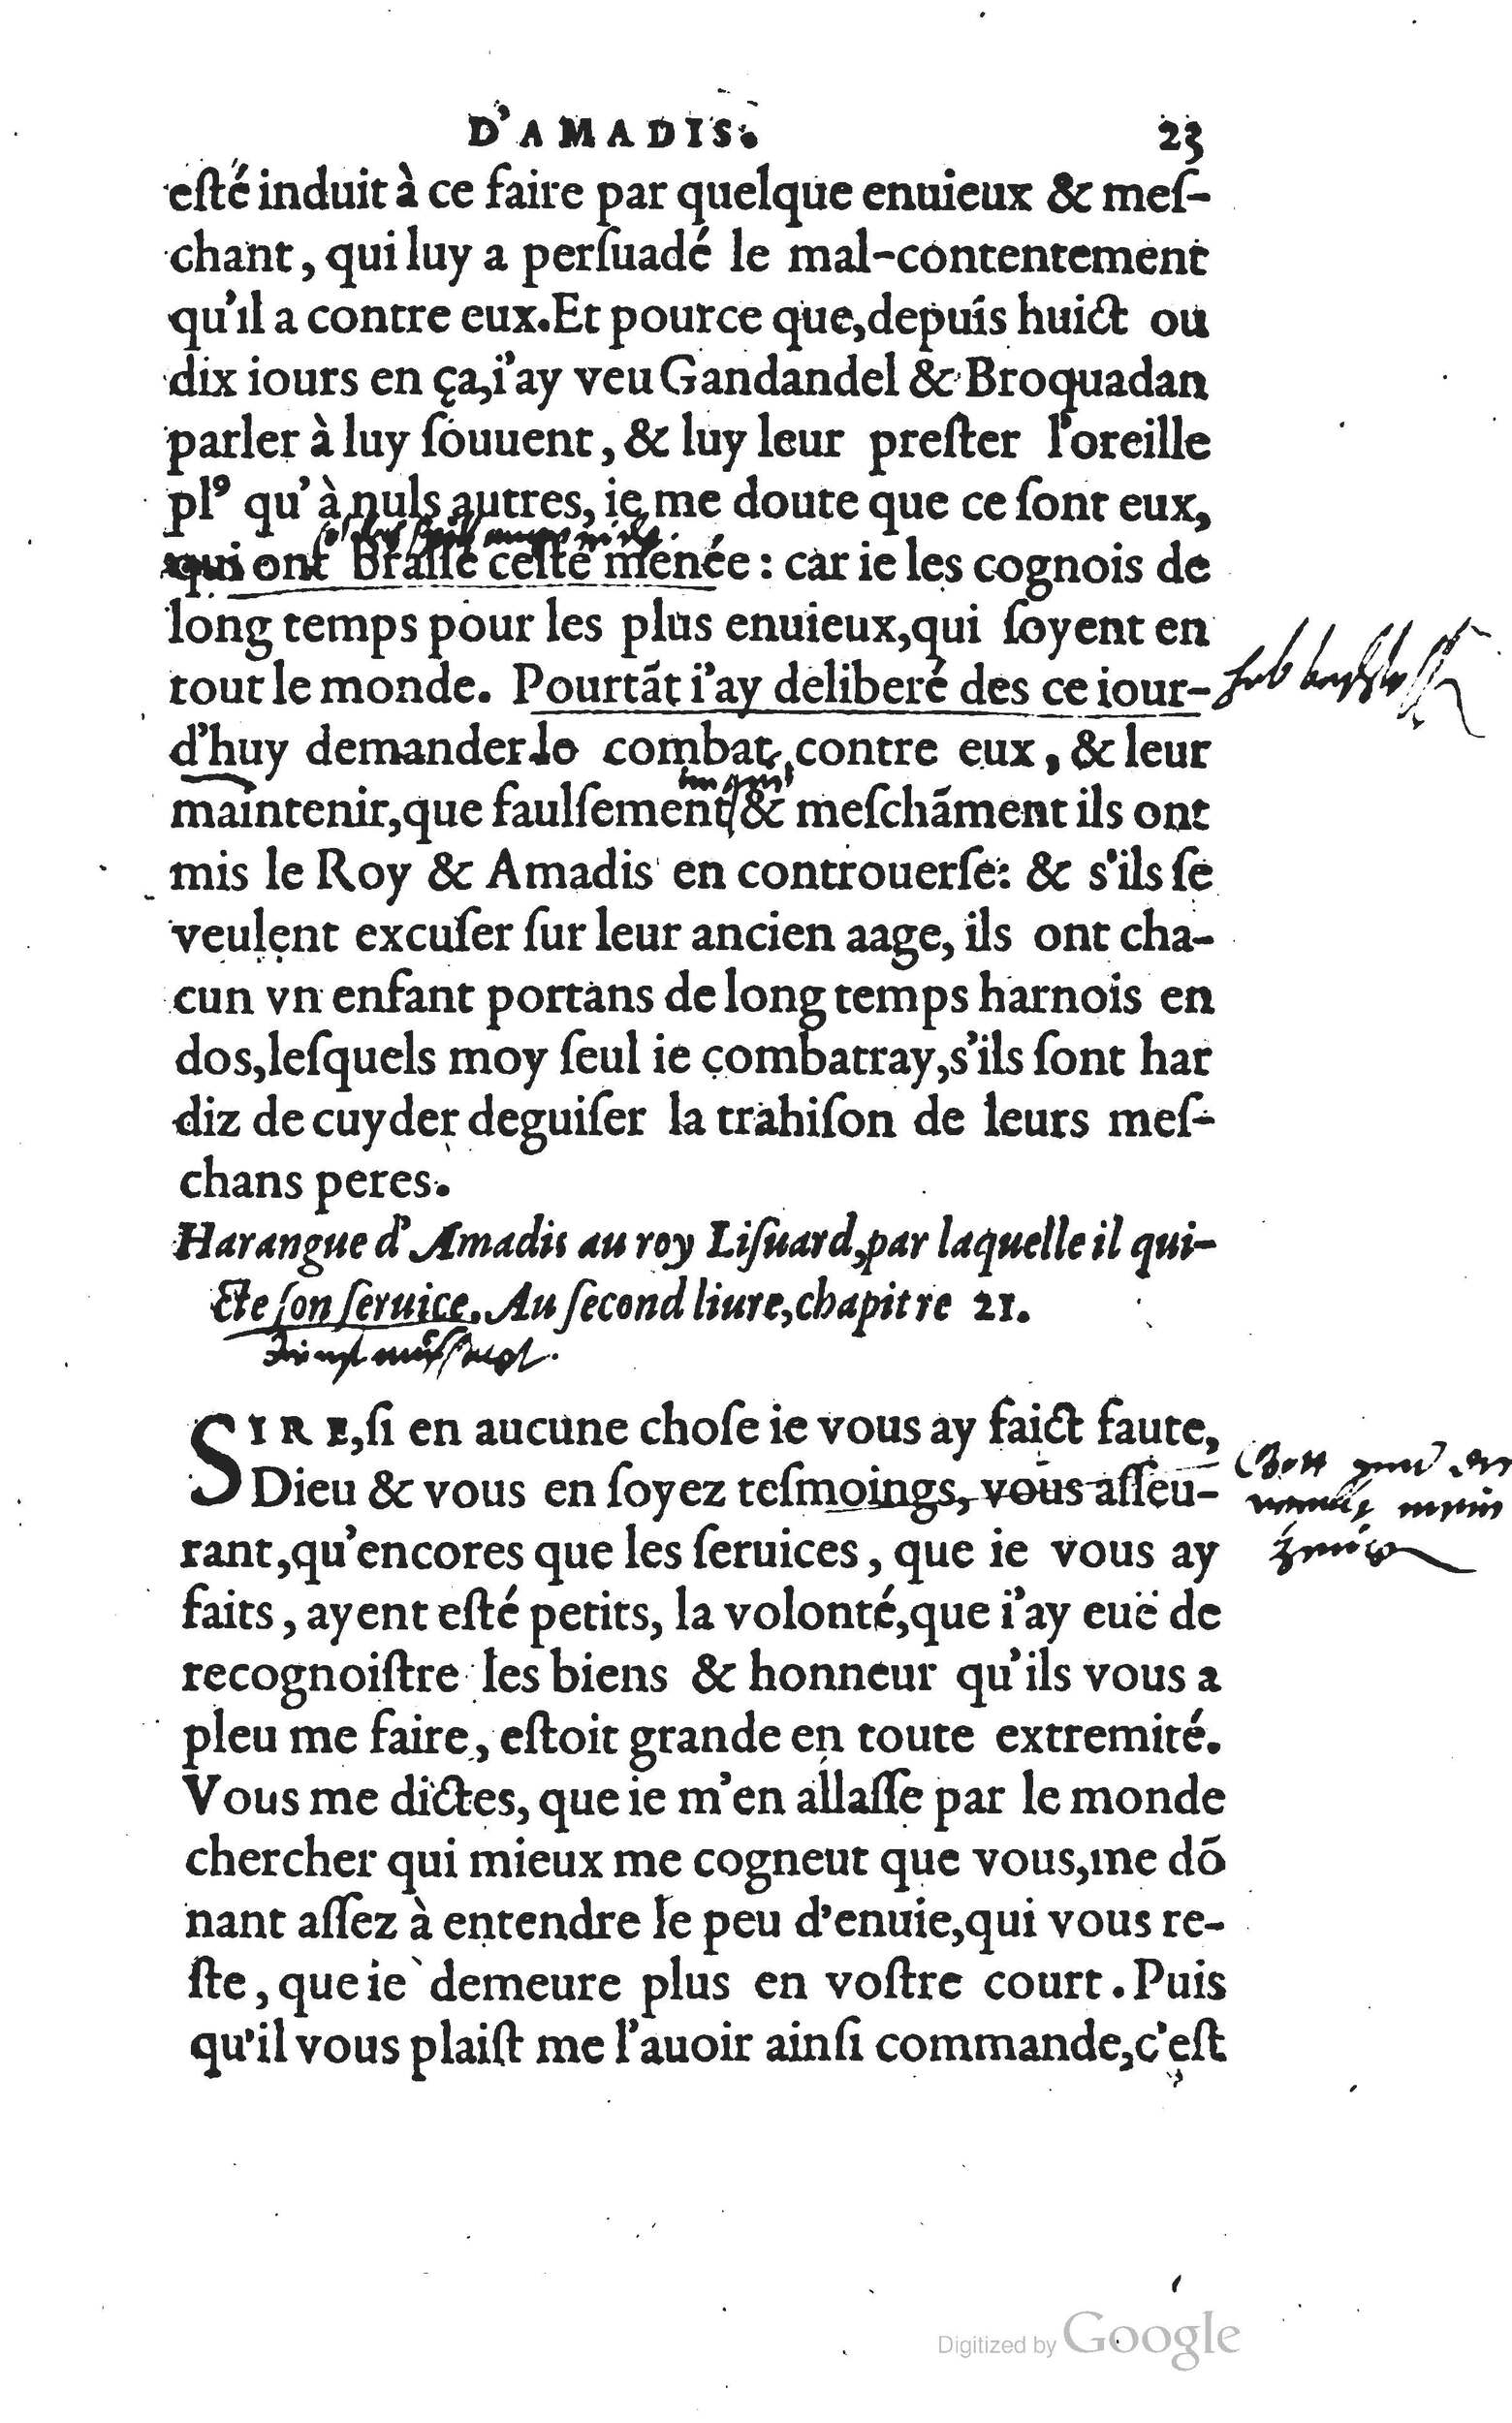 D'AMADIS. 23
esté induit à ce faire par quelque enuieux & meſ-
chant, qui luy a perſuadé le mal-contentement
qu'il a contre eux. Et pource que, depuis huict ou
dix iours en ça, i'ay veu Gandandel & Broquadan
parler à luy ſouuent, & luy leur preſter l'oreille
plꝰ qu'à nuls autres, ie me doute que ce ſont eux,
qui ont braſſé ceſte menée : car ie les cognois de
long temps pour les plus enuieux, qui ſoyent en
tout le monde. Pourtãt i'ay deliberé des ce iour-
d'huy demander le combat contre eux, & leur
maintenir, que faulſement & meſchãment ils ont
mis le Roy & Amadis en controuerſe: & s'ils ſe
veulent excuſer ſur leur ancien aage, ils ont cha-
cun vn enfant portans de long temps harnois en
dos, leſquels moy ſeul ie combatray, s'ils ſont har
diz de cuyder deguiſer la trahiſon de leurs meſ-
chans peres.
Harangue d'Amadis au roy Liſuard, par laquelle il qui-
cte ſon ſeruice. Au ſecond liure, chapitre 21.
SIRE, ſi en aucune choſe ie vous ay faict faute,
Dieu & vous en ſoyez teſmoings, vous aſſeu-
rant, qu'encores que les ſeruices, que ie vous ay
faits, ayent eſté petits, la volonté, que i'ay euë de
recognoiſtre les biens & honneur qu'ils vous a
pleu me faire, eſtoit grande en toute extremité.
Vous me dictes, que ie m'en allaſſe par le monde
chercher qui mieux me cogneut que vous, me dõ
nant aſſez à entendre le peu d'enuie, qui vous re-
ſte, que ie demeure plus en voſtre court. Puis
qu'il vous plaiſt me l'auoir ainſi commande, c'eſt
Digitized by Google